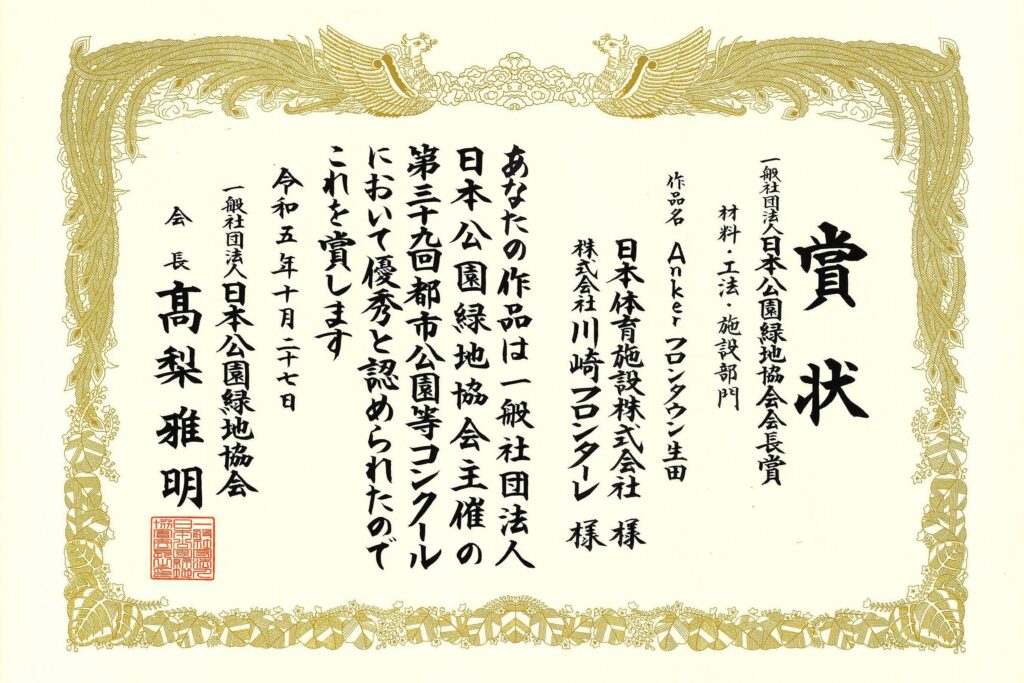 賞状
一般社団法人日本公園緑地協会会長賞
材料・工法・施設部門
作品名 Ankerフロンタウン生田
日本体育施設株式会社 様
株式会社川崎フロンターレ 様
あなたの作品は一般社団法人
日本公園緑地協会主催の
第三十九回都市公園等コンクール
において優秀と認められたので
これを賞します
令和五年十月二十七日
一般社団法人日本公園緑地協会
会長 髙梨雅明